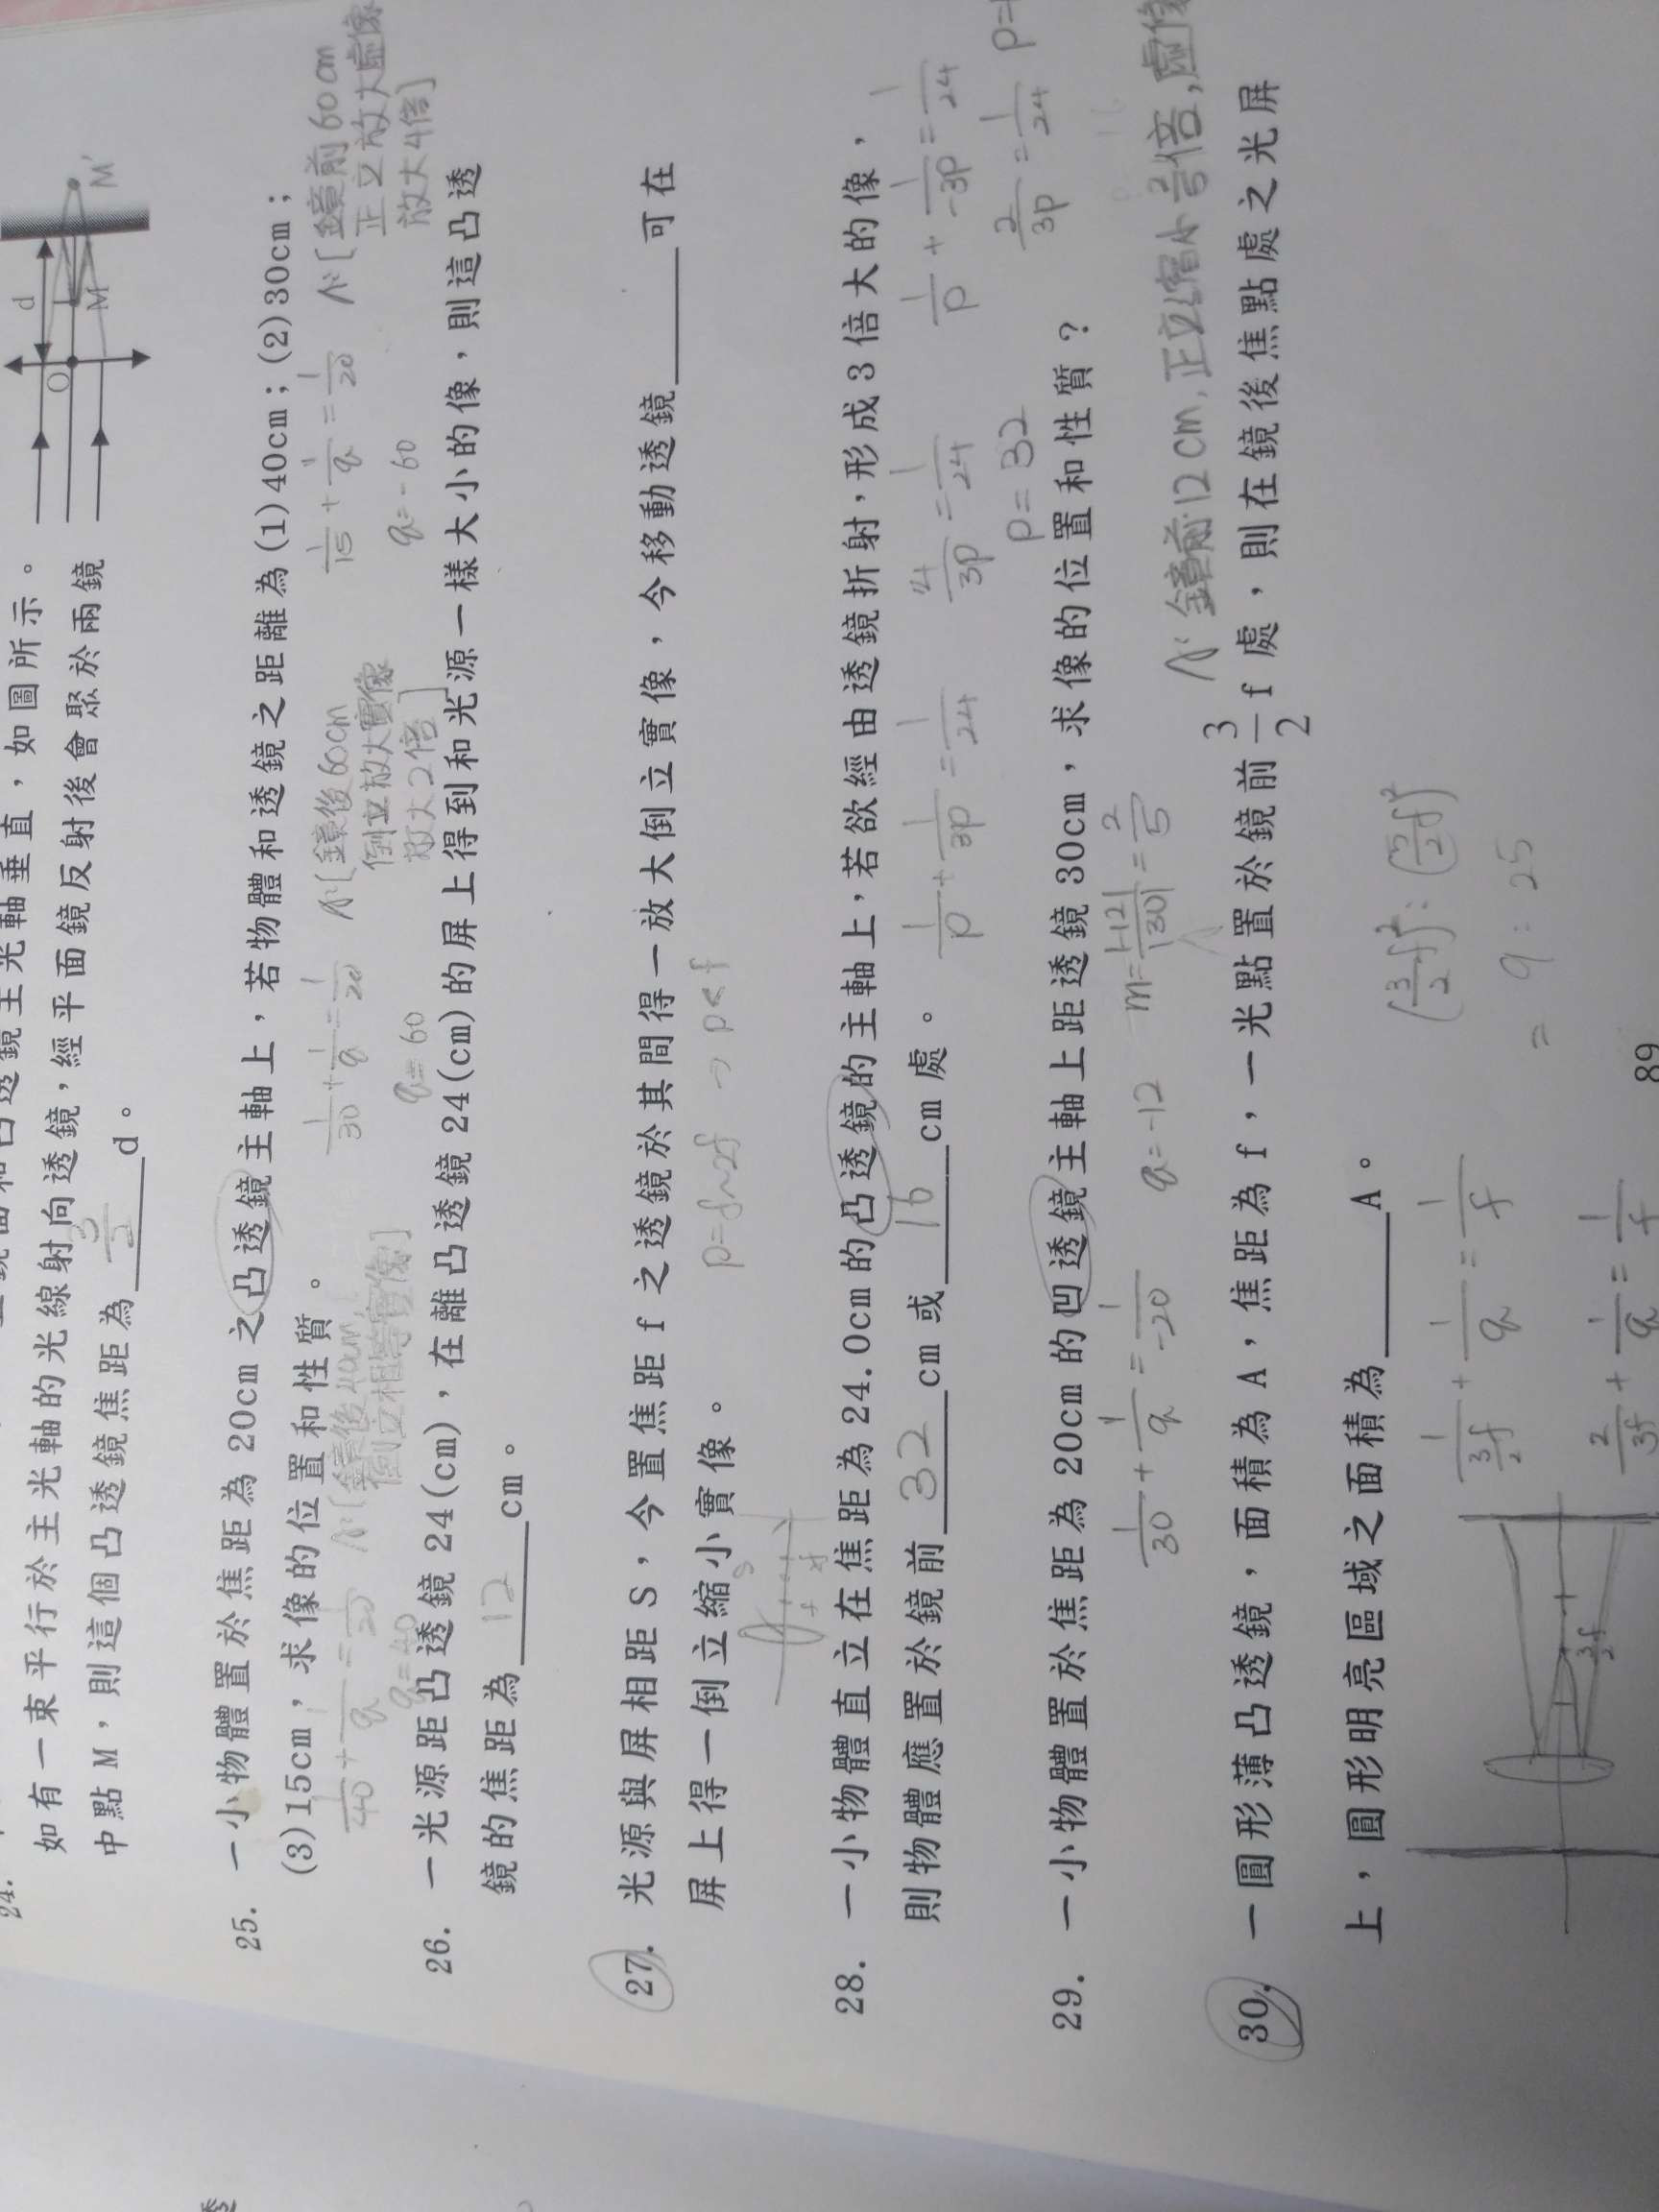 24.
如有一束平行於主光軸的光線射向透鏡，經平面鏡反射後會聚於兩鏡
中點M，則這個凸透鏡焦距為 3/2 d。
d
O
M
M'
25. 一小物體置於焦距為20cm之凸透鏡主軸上，若物體和透鏡之距離為(1)40cm；(2)30cm；
(3)15cm，求像的位置和性質。
1/40 + 1/q = 1/20
q=40
A:[鏡後40cm,
倒立相等實像]
1/30 + 1/q = 1/20
q=60
A:[鏡後60cm
倒立放大實像
放大2倍]
1/15 + 1/q = 1/20
q=-60
A:[鏡前60cm
正立放大虛像
放大4倍]
26. 一光源距凸透鏡24(cm)，在離凸透鏡24(cm)的屏上得到和光源一樣大小的像，則這凸透
鏡的焦距為 12 cm。
27. 光源與屏相距S，今置焦距f之透鏡於其間得一放大倒立實像，今移動透鏡______可在
屏上得一倒立縮小實像。
p=f~2f → p<f
28. 一小物體直立在焦距為24.0cm的凸透鏡的主軸上，若欲經由透鏡折射，形成3倍大的像，
則物體應置於鏡前 32 cm或 16 cm處。
1/p + 1/3p = 1/24
4/3p = 1/24
p=32
1/p + 1/-3p = 1/24
2/3p = 1/24
p=
29. 一小物體置於焦距為20cm的凹透鏡主軸上距透鏡30cm，求像的位置和性質？
1/30 + 1/q = 1/-20
q=-12
m=|-12|/|30| = 2/5
A: 鏡前12cm,正立縮小2/5倍,虛像
30. 一圓形薄凸透鏡，面積為A，焦距為f，一光點置於鏡前3/2 f處，則在鏡後焦點處之光屏
上，圓形明亮區域之面積為______A。
1/(3/2 f) + 1/q = 1/f
2/3f + 1/q = 1/f
(3/2 f)²:(5/2 f)²
= 9:25
3/2 f
89